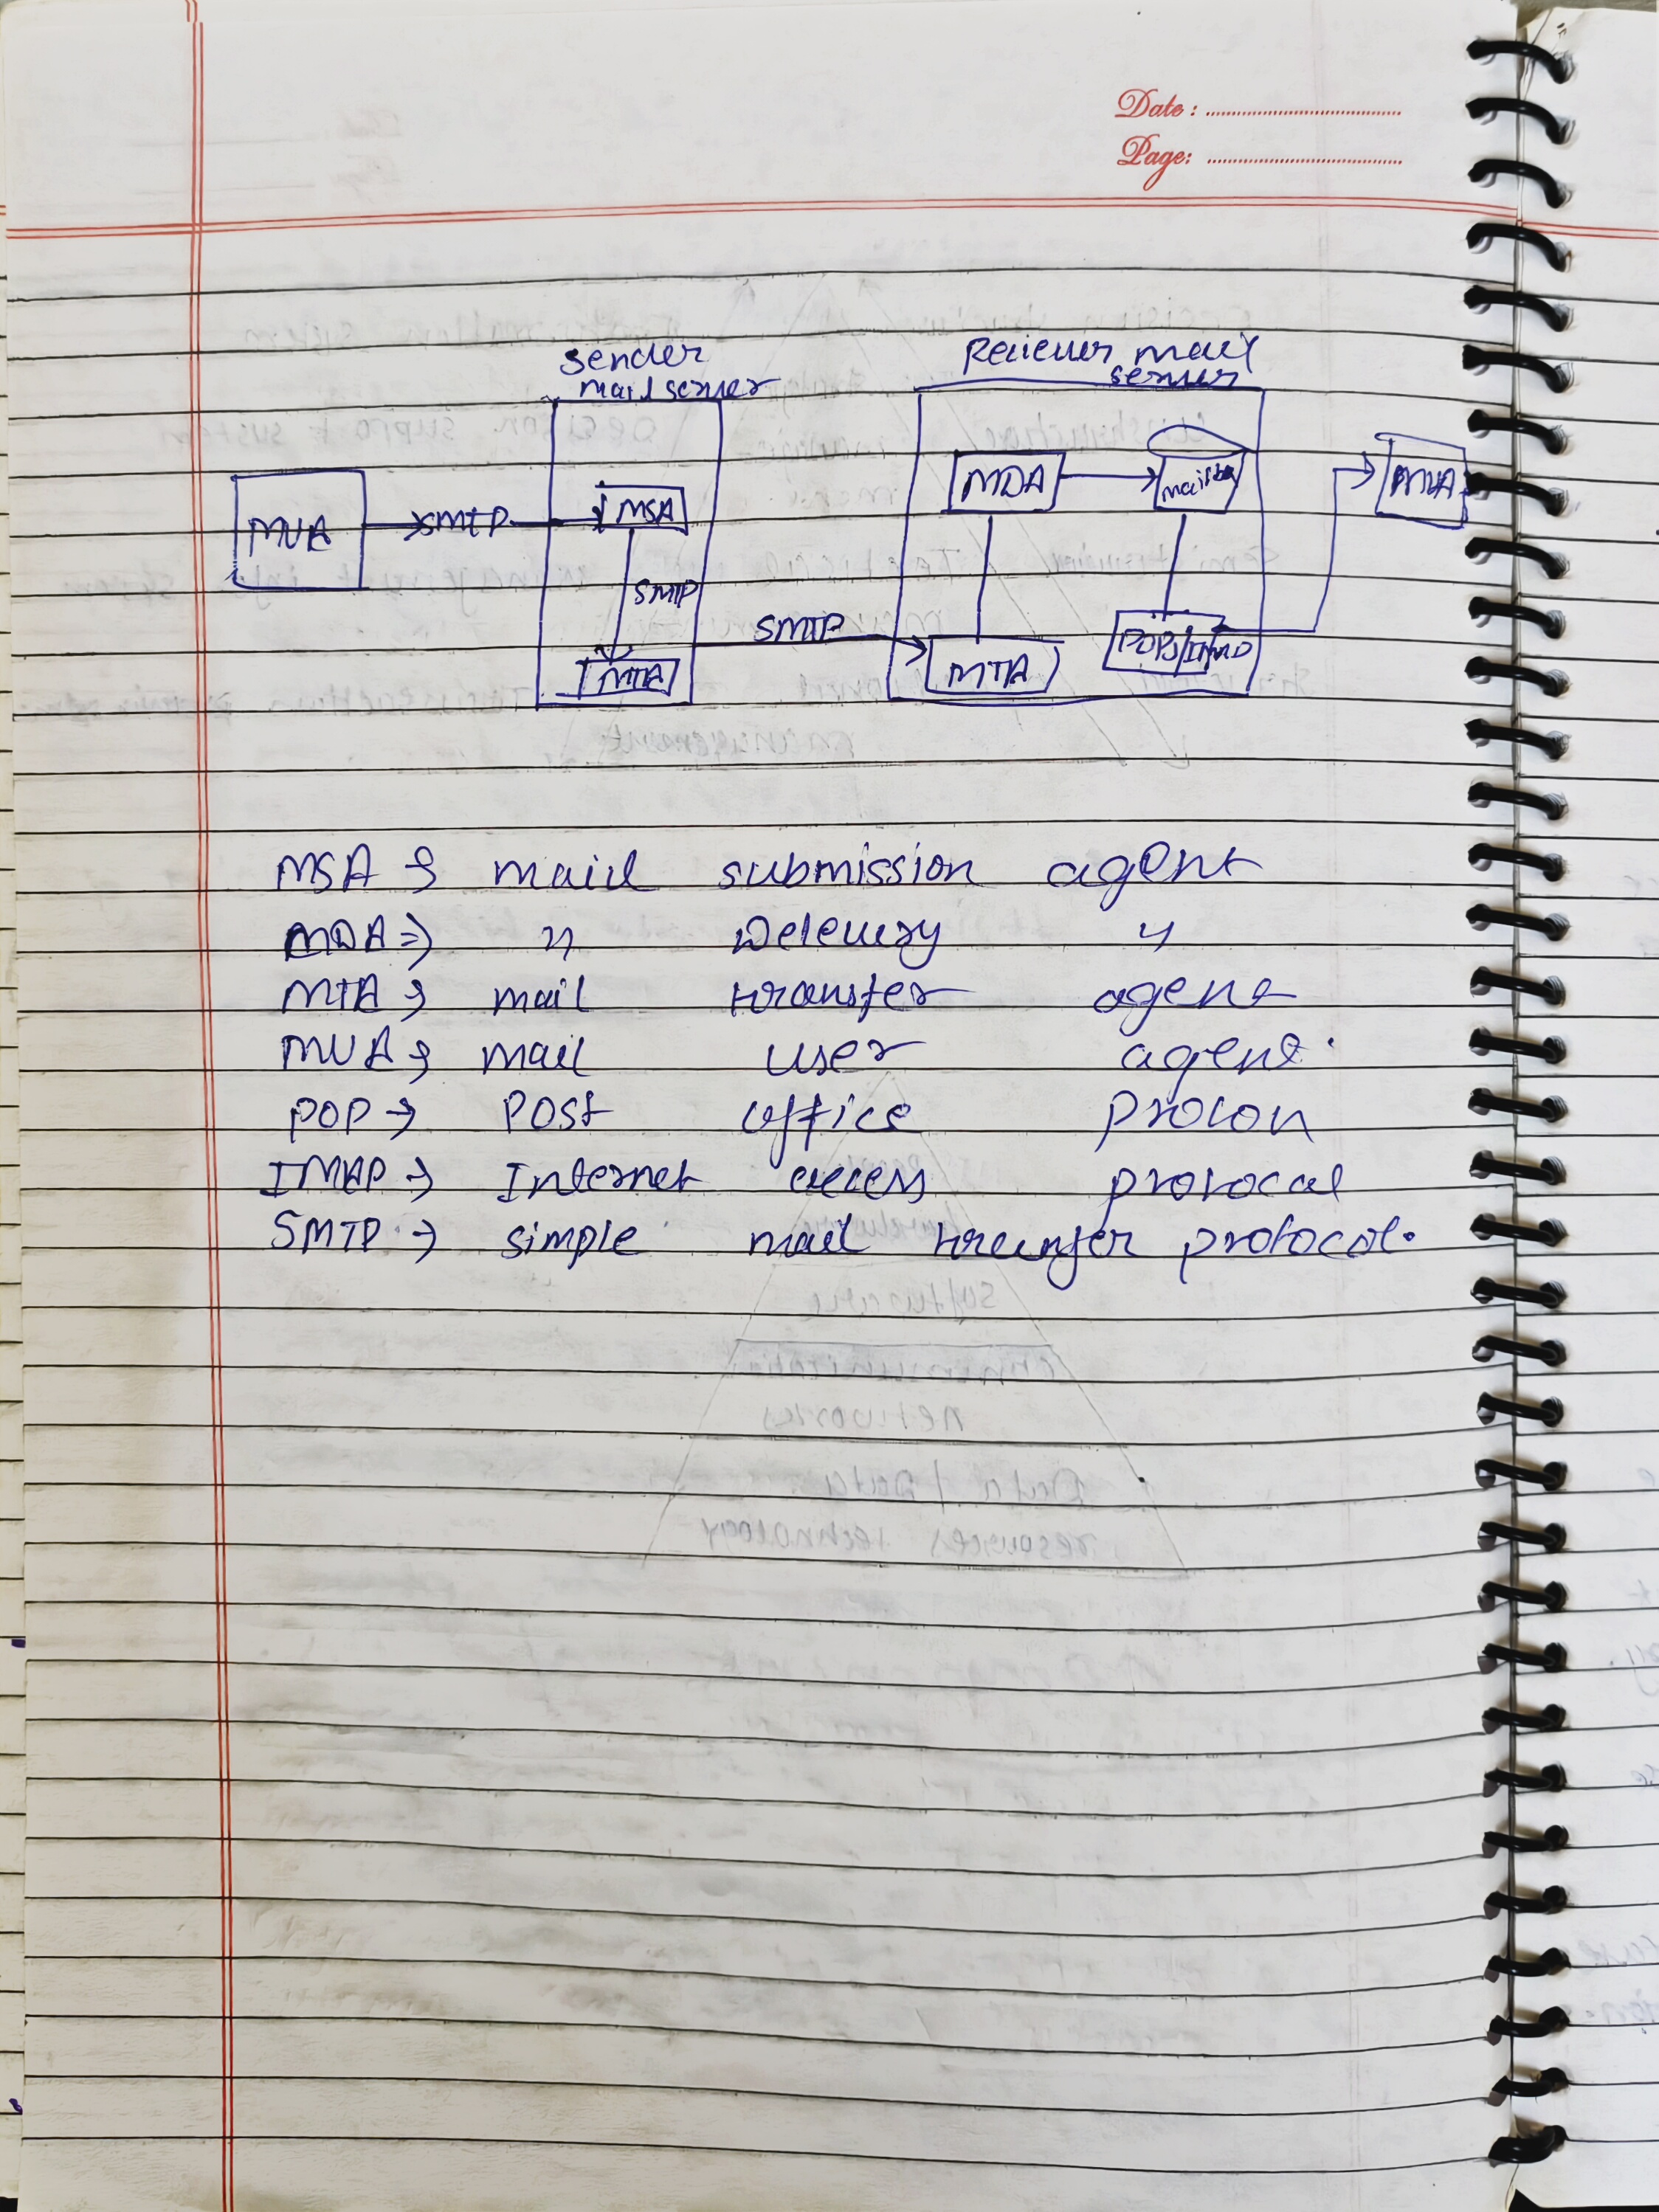 Date :
Page:
sender
mail server
Reciever mail
server
MUA
SMTP
MSA
SMTP
MTA
SMTP
MDA
MTA
MUA
MSA → maid submission agent
MDA ⇒ " Delevery "
MTA → mail transfer agent
MUA → mail user agent.
POP → Post office
IMAP → Internet access protocal
SMTP → simple mail transfer protocol.